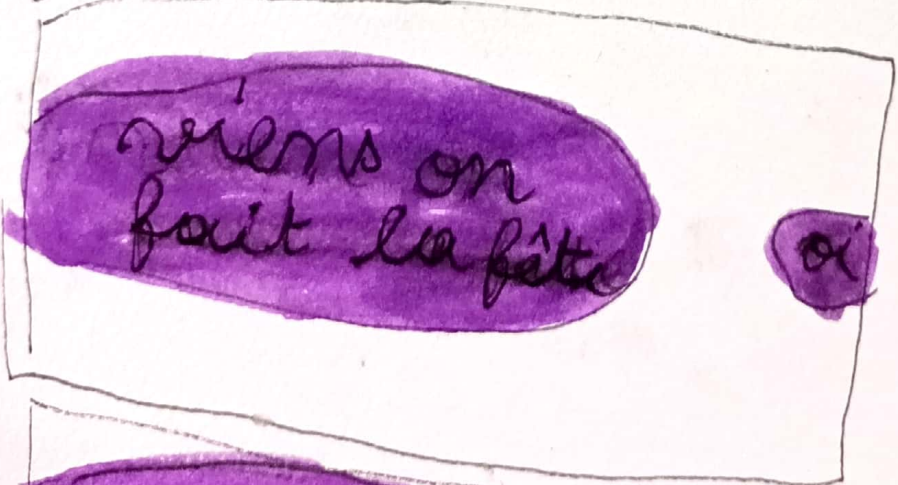 viens on
fait la fête
oi